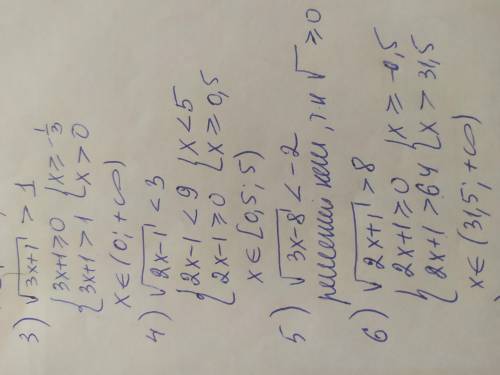 3) √3x+1 > 1
{ 3x+1 ≥ 0 { x ≥ -1/3
{ 3x+1 > 1 { x > 0
x ∈ (0; +∞)
4) √2x-1 < 3
{ 2x-1 < 9 { x < 5
{ 2x-1 ≥ 0 { x ≥ 0,5
x ∈ [0,5; 5)
5) √3x-8 < -2
решений нет, т.к √ ≥ 0
6) √2x+1 > 8
{ 2x+1 ≥ 0 { x ≥ -0,5
{ 2x+1 > 64 { x > 31,5
x ∈ (31,5; +∞)